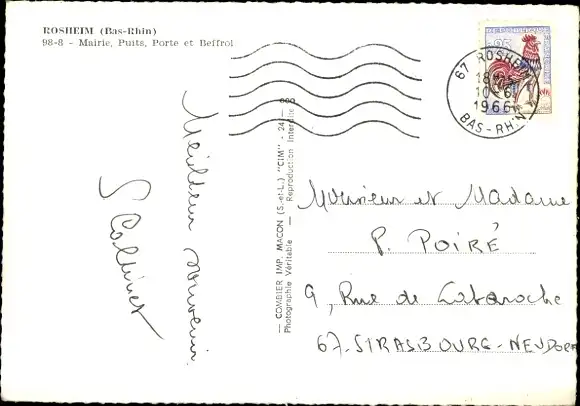 ROSHEIM (Bas-Rhin)
98-8 - Mairie, Puits, Porte et Beffroi
67 ROSHEIM
18H
10-6
1966
BAS-RHIN
Meilleur souvenir
— COMBIER IMP. MACON (S.-et-L.) "CIM" - 24
Photographie Véritable — Reproduction Interdite
Monsieur et Madame
P. POIRÉ
9, Rue de Labaroche
67-STRASBOURG-NEUDORF